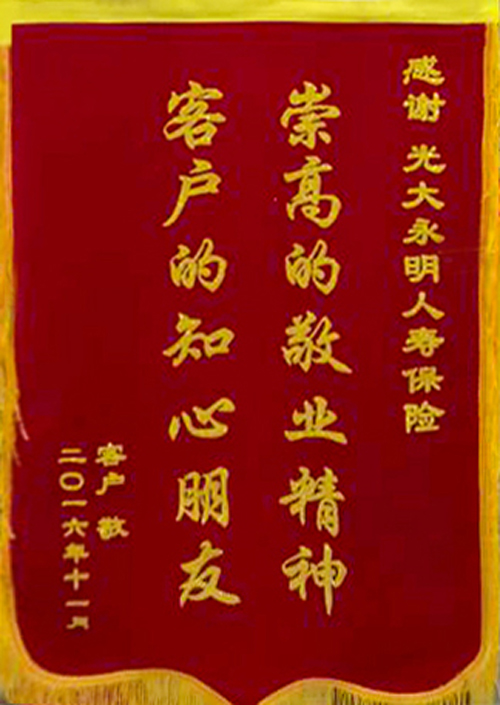 感谢 光大永明人寿保险
崇高的敬业精神
客户的知心朋友
客户 敬
二〇一六年十一月